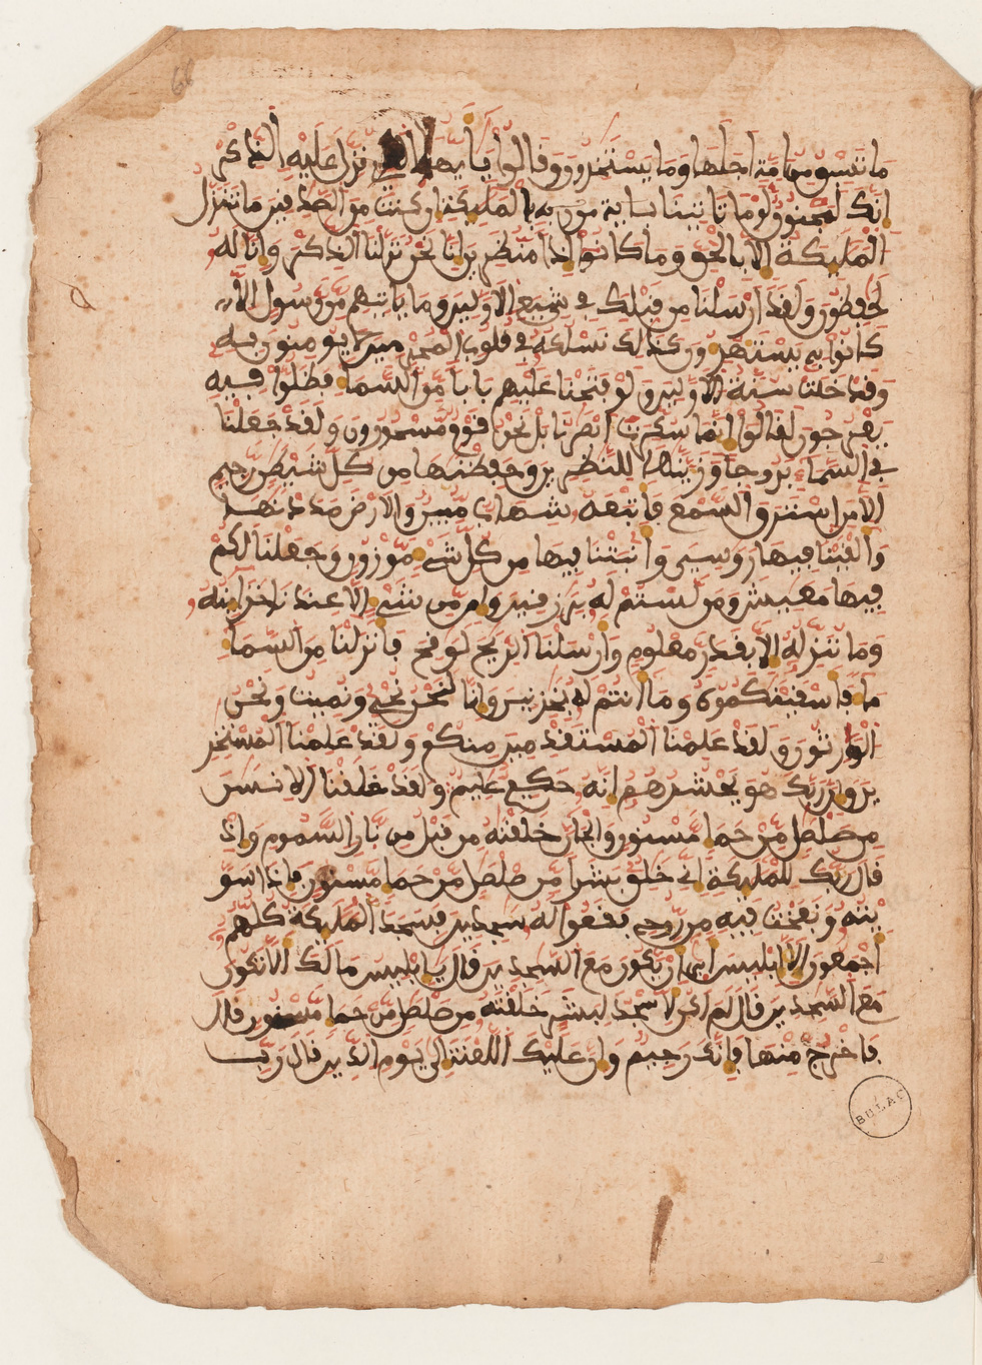 ما تسبق من امة اجلها وما يستخرون وقالوا يايها الذے نزل عليه الذكر
انك لمجنون لو ما تاتينا بالمليكة ان كنت من الصدفين ما تنزل
المليكة الا بالحق وما كانوا اذا منظرين انا نحن نزلنا الذكر وانا له
لحفظون ولقد ارسلنا من قبلك في شيع الاولين وما ياتيهم من رسول الا
كانوا به يستهزون كذلك نسلكه في قلوب المجرمين لا يومنون به
وقد خلت سنة الاولين ولو فتحنا عليهم بابا من السما فظلوا فيه
يعرجون لقالوا انما سكرت ابصرنا بل نحن قوم مسحورون ولقد جعلنا
في السما بروجا وزينها للنظرين وحفظنها من كل شيطن رجيم
الا من استرق السمع فاتبعه شهاب مبين والارض مددنها
والقينا فيها روسى وانبتنا فيها من كل شے موزون وجعلنا لكم
فيها معيش ومن لستم له برزقين وان من شے الا عندنا خزاينه
وما ننزله الا بقدر معلوم وارسلنا الريح لوقح فانزلنا من السما
ما فاسقينكموه وما انتم له بخزنين وانا لنحن نحے ونميت ونحن
الورثون ولقد علمنا المستقدمين منكم ولقد علمنا المستخر
ين وان ربك هو يحشرهم انه حكيم عليم ولقد خلقنا الانسن
من صلصل من حما مسنون والجان خلقنه من قبل من نار السموم واذ
قال ربك للمليكة انے خلق بشرا من صلصل من حما مسنون فاذا سو
يته ونفخت فيه من روحے فقعوا له سجدين فسجد المليكة كلهم
اجمعون الا ابليس ابى ان يكون مع السجدين قال يابليس ما لك الا تكون
مع السجدين قال لم اكن لاسجد لبشر خلقته من صلصل من حما مسنون قال
فاخرج منها فانك رجيم وان عليك اللعنة الى يوم الدين قال رب
BULAC